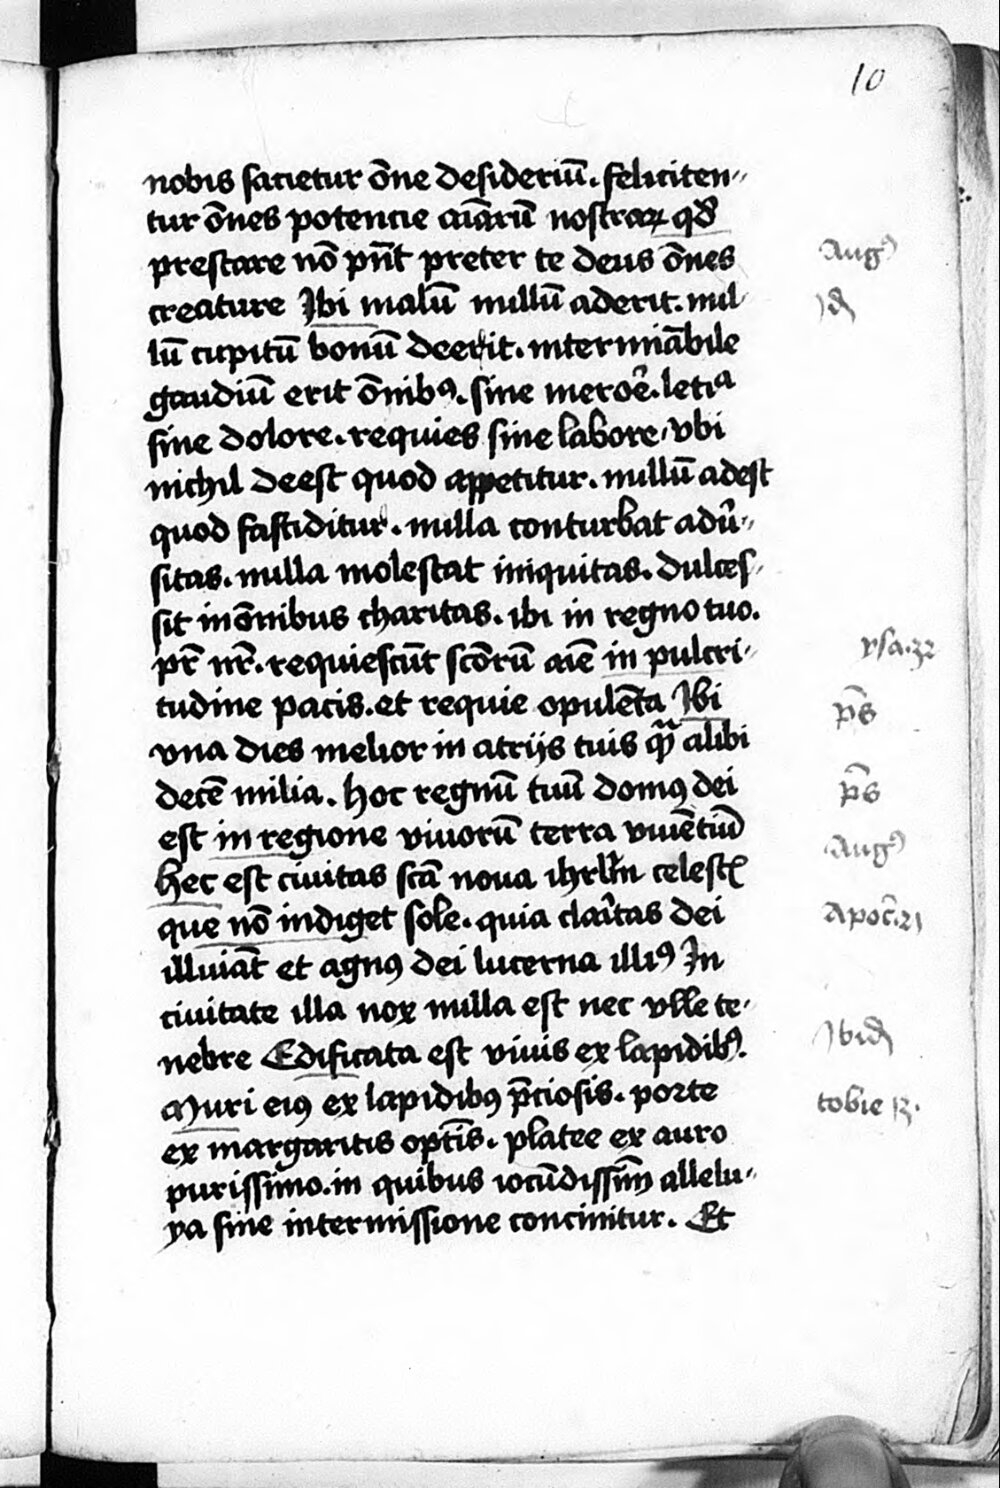 10
nobis sacietur o̅ne desideriu̅. feliciten〃
tur o̅nes potencie ai̅aru̅ nostraꝝ qd̅
prestare no̅ pn̅t preter te deus o̅nes
Augꝰ
creature Ibi malu̅ nullu̅ aderit. nul
Id̅
lu̅ cupitu̅ bonu̅ deerit. intermia̅bile
gaudiu̅ erit o̅nibꝰ. sine meroe̅. letiᵃ
sine dolore. requies sine labore, vbi
nichil deest quod appetitur. nullu̅ adest
quod fastiditur. nulla conturbat adu̅〃
sitas. nulla molestat iniquitas. dulces〃
sit in o̅nibus charitas. ibi in regno tuo.
pr̅ nr̅. requiescu̅t sco̅ru̅ aie̅ in pulcri〃
ysa. 32
tudine pacis. et requie opule̅ta Ibi
p̅s
vna dies melior in atrijs tuis qᷓ alibi
dece̅ milia. Hoc regnu̅ tuu̅ domꝰ dei
p̅s
est in regione viuoru̅ terra viue̅tiu̅
Augꝰ
Hec est ciuitas sca̅ noua ihrl̅m celestꝭ
que no̅ indiget sole. quia clai̅tas dei
Apoc̅. 21
illuia̅t et agnꝰ dei lucerna illiꝰ In
ciuitate illa nox nulla est nec vlle te〃
nebre Edificata est viuis ex lapidibꝰ.
Ibid̅
Muri eiꝰ ex lapidibꝰ p̅ciosis. porte
tobie 13.
ex margaritis opti̅s. platee ex auro
purissimo. in quibus iocu̅dissim̅ allelu〃
ya sine intermissione concinitur. Et